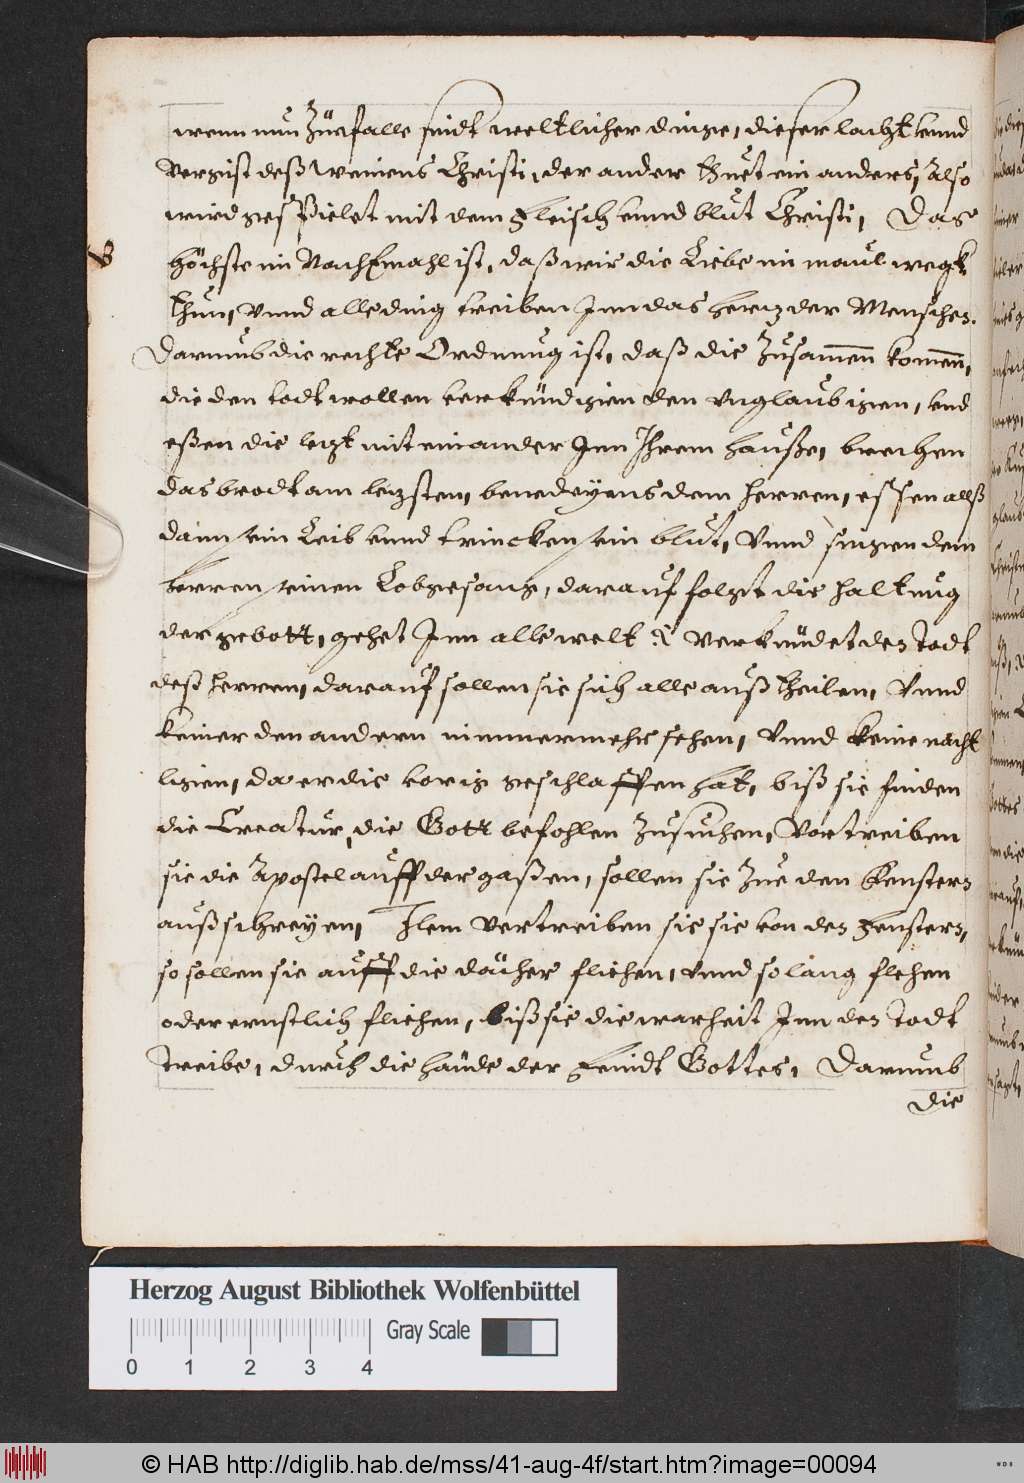 wenn nun Zuefalle sindt weltlicher dinge, dieser lacht vnnd
vergist deß weinens Christi, der ander thuet ein anders, Also
wird gespielet mit dem fleisch vnnd blut Christi, Das
höchste im Nachtmahl ist, daß wir die Liebe im maul wegk
thun, vnnd alle ding treiben Inn das hertz der Menschen.
Darumb die rechte Ordnung ist, daß die Zusamen komen,
die den todt wollen verkündigen den vnglaubigen, vnd
eßen die letzt mit einander Inn Ihrem hauße, brechen
das brodt am letzsten, benedeyens dem herren, essen allß
dann ein Leib vnnd trincken ein blut, Vnnd singen dem
herren einen Lobgesang, darauf folgt die haltung
der gebott, gehet Inn alle welt & verkündet den todt
deß herren, darauf sollen sie sich alle auß theilen, Vnnd
keiner den andern nimmermehr sehen, Vnnd keine nacht
ligen, da er die vorig geschlaffen hat, biß sie finden
die Creatur, die Gott befohlen Zusuchen, Vortreiben
sie die Apostel auff der gaßen, sollen sie Zue den fenstern
außschreyen, Item vertreiben sie sie von den fenstern,
so sollen sie auff die dächer fliehen, vnnd so lang flehen
oder ernstlich fliehen, biß sie die warheit Inn den todt
treibe, durch die hände der feindt Gottes, Darumb
die
Herzog August Bibliothek Wolfenbüttel
Gray Scale
0 1 2 3 4
© HAB http://diglib.hab.de/mss/41-aug-4f/start.htm?image=00094